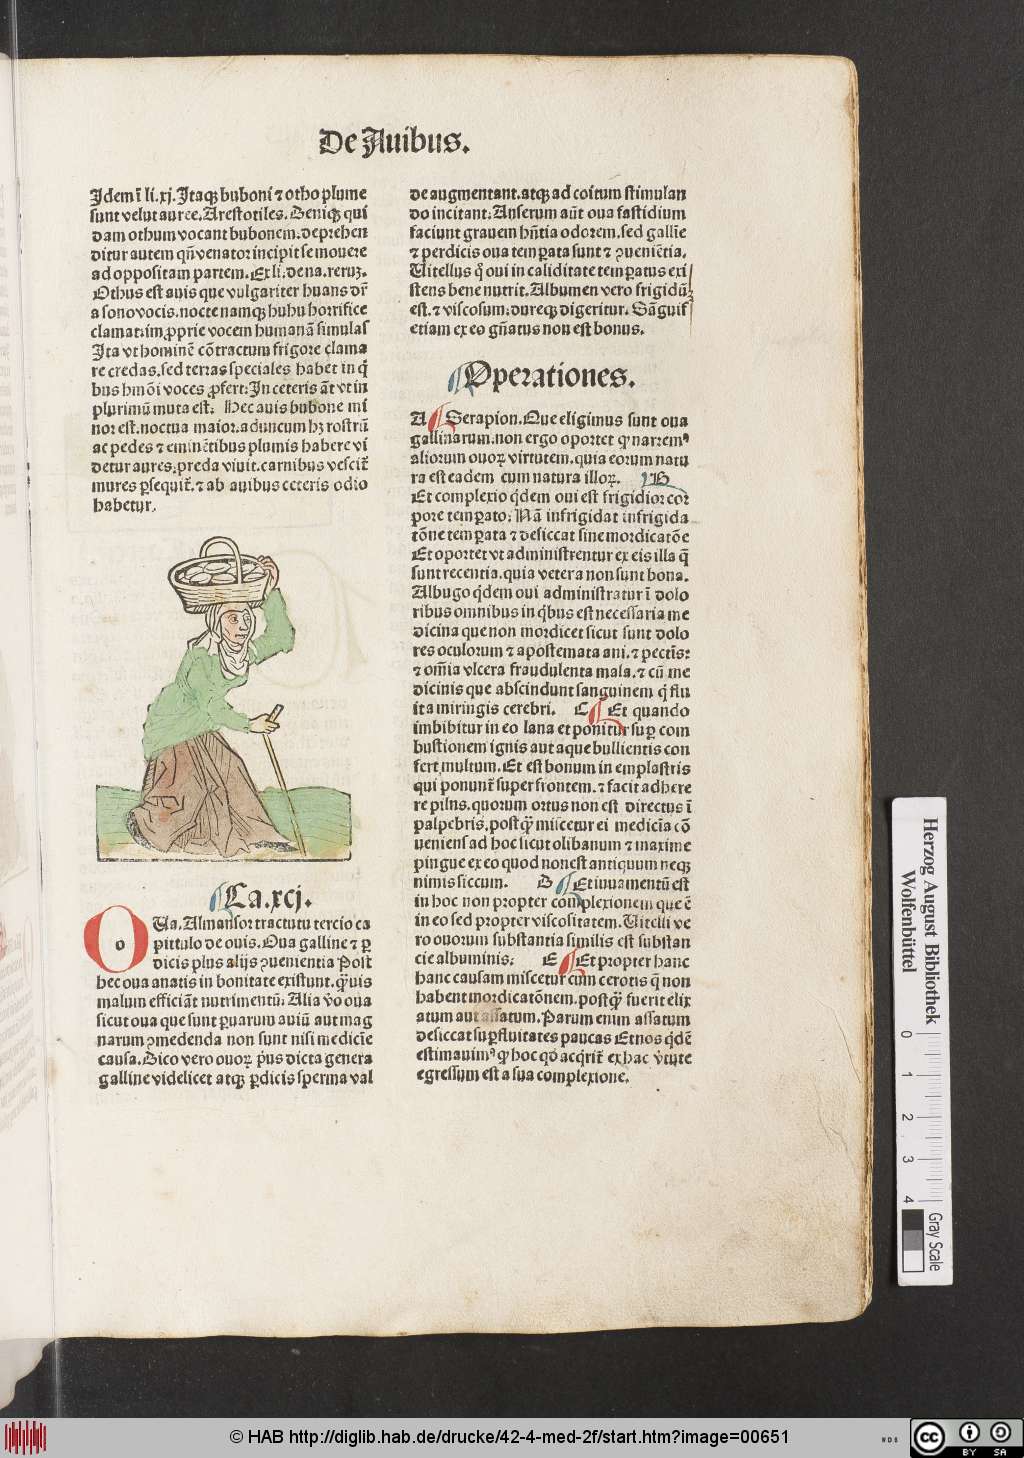 De Auibus.
Idem ī li.xj. Itaqꝫ buboni ⁊ otho plume
sunt velut auree. Arestotiles. Deniqꝫ qui
dam othum vocant bubonem. deprehen
ditur autem qn̄ venator incipit se mouere
ad oppositam partem. Ex li. de na. reruꝫ.
Othus est auis que vulgariter huans dr̄
a sono vocis. nocte namqꝫ huhu horrifice
clamat: im ꝓprie vocem humanā simulās
Ita vt hominē cōtractum frigore clama
re credas. sed terras speciales habet in q̄
bus hmōi voces ꝓfert: In ceteris āt vt in
plurimū muta est. Hec auis bubone mi
nor est. noctua maior. aduncum hꝫ rostrū
ac pedes ⁊ eminētibus plumis habere vi
detur aures. preda viuit. carnibus vescit̄
mures ꝑsequit̄. ⁊ ab auibus ceteris odio
habetur.
Ca.xcj.
O
o
Ua. Almansor tractutu tercio ca
pittulo de ouis. Oua galline ⁊ ꝑ
dicis plus alijs ꝯuenientia Post
hec oua anatis in bonitate existunt. q̄uis
malum efficiāt nutrimentū: Alia v̄o oua
sicut oua que sunt ꝑuarum auiū aut mag
narum ꝯmedenda non sunt nisi medicīe
causa. Dico vero ouoꝝ p̄us dicta genera
galline videlicet atqꝫ ꝑdicis sperma val
de augmentant. atqꝫ ad coitum stimulan
do incitant: Anserum aūt oua fastidium
faciunt grauem hn̄tia odorem. sed gallīe
⁊ perdicis oua temꝑata sunt ⁊ ꝯueniētia.
Uitellus q̄ oui in caliditate temꝑatus exi
stens bene nutrit. Albumen vero frigidū
est. ⁊ viscosum: dureqꝫ digeritur. Sāguis
etiam ex eo gn̄atus non est bonus.
Operationes.
A Serapion. Que eligimus sunt oua
gallinarum. non ergo oportet q̄ narremꝰ
aliorum ouoꝝ virtutem. quia eorum natu
ra est eadem cum natura illoꝝ. B
Et complexio q̄dem oui est frigidior cor
pore temꝑato: Nā infrigidat infrigida
tōne temꝑata ⁊ desiccat sine mordicatōe
Et oportet vt administrentur ex eis illa q̄
sunt recentia. quia vetera non sunt bona.
Albugo q̄dem oui administratur ī dolo
ribus omnibus in q̄bus est necessaria me
dicina que non mordicet sicut sunt dolo
res oculorum ⁊ apostemata ani. ⁊ pectīs:
⁊ om̄ia vlcera fraudulenta mala. ⁊ cū me
dicinis que abscindunt sanguinem q̄ flu
it a miringis cerebri. C Et quando
imbibitur in eo lana et ponitur suꝑ com
bustionem ignis aut aque bullientis con
fert multum. Et est bonum in emplastris
qui ponunt̄ super frontem. ⁊ facit adhere
re pilns. quorum ortus non est directus ī
palpebris. postq̄ miscetur ei medicīa cō
ueniens ad hoc sicut olibanum ⁊ maxime
pingue ex eo quod non est antiquum neqꝫ
nimis siccum. D Et iuuamentū est
in hoc non propter complexionem que ē
in eo sed propter viscositatem. Uitelli ve
ro ouorum substantia similis est substan
cie albuminis: E Et propter hanc
hanc causam miscetur cum cerotis q̄ non
habent mordicatōnem. postq̄ fuerit elix
atum aut assatum. Parum enim assatum
desiccat suꝑfluitates paucas Et nos q̄dē
estimauimꝰ q̄ hoc qd̄ acq̄rit̄ ex hac v̄tute
egressum est a sua complexione.
Herzog August Bibliothek
Wolfenbüttel
0 1 2 3 4
Gray Scale
© HAB http://diglib.hab.de/drucke/42-4-med-2f/start.htm?image=00651
WDB
cc BY SA